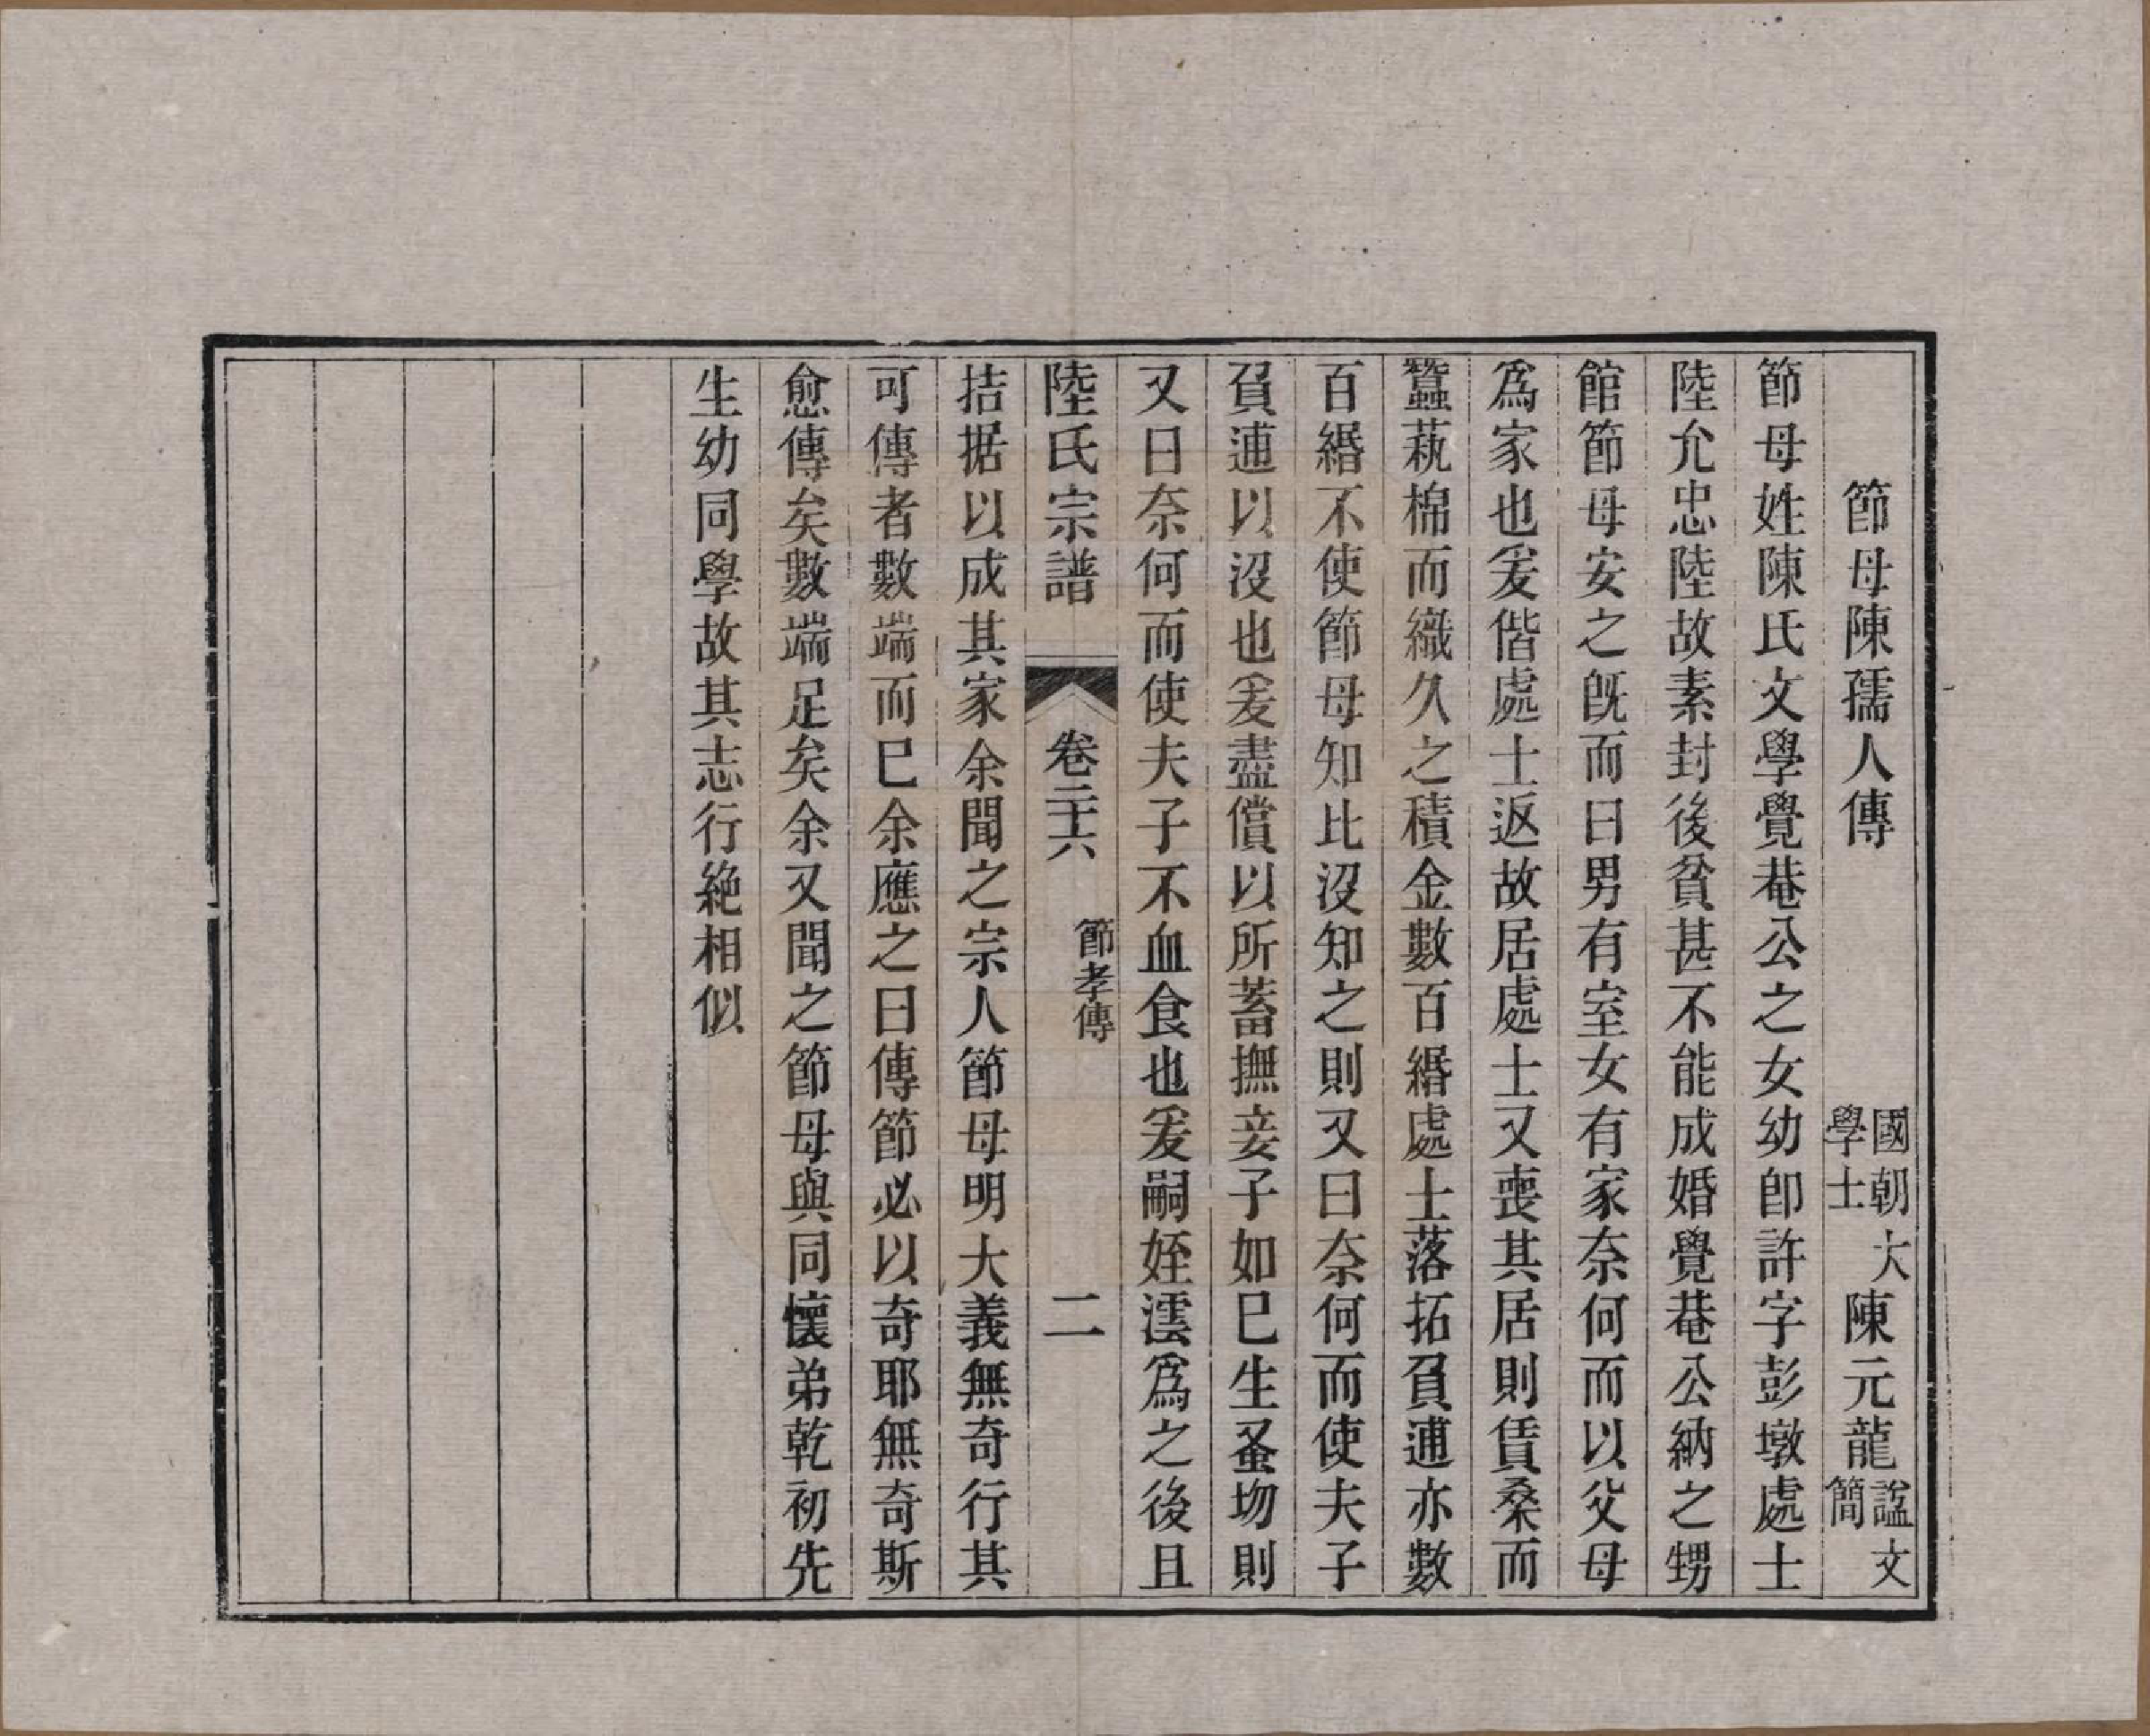 節母陳孺人傳　國朝大學士陳元龍諡文簡
節母姓陳氏文學覺菴公之女幼卽許字彭墩處士
陸允忠陸故素封後貧甚不能成婚覺菴公納之甥
館節母安之旣而曰男有室女有家奈何而以父母
爲家也爰偕處士返故居處士又喪其居則賃桑而
蠶蓺棉而織久之積金數百緡處士落拓負逋亦數
百緡不使節母知比沒知之則又曰奈何而使夫子
負逋以沒也爰盡償以所蓄撫妾子如巳生蚤歾則
又曰奈何而使夫子不血食也爰嗣姪澐爲之後且
陸氏宗譜　卷二十六　節孝傳　二
拮据以成其家余聞之宗人節母明大義無奇行其
可傳者數端而巳余應之曰傳節必以奇耶無奇斯
愈傳矣數端足矣余又聞之節母與同懷弟乾初先
生幼同學故其志行絶相似